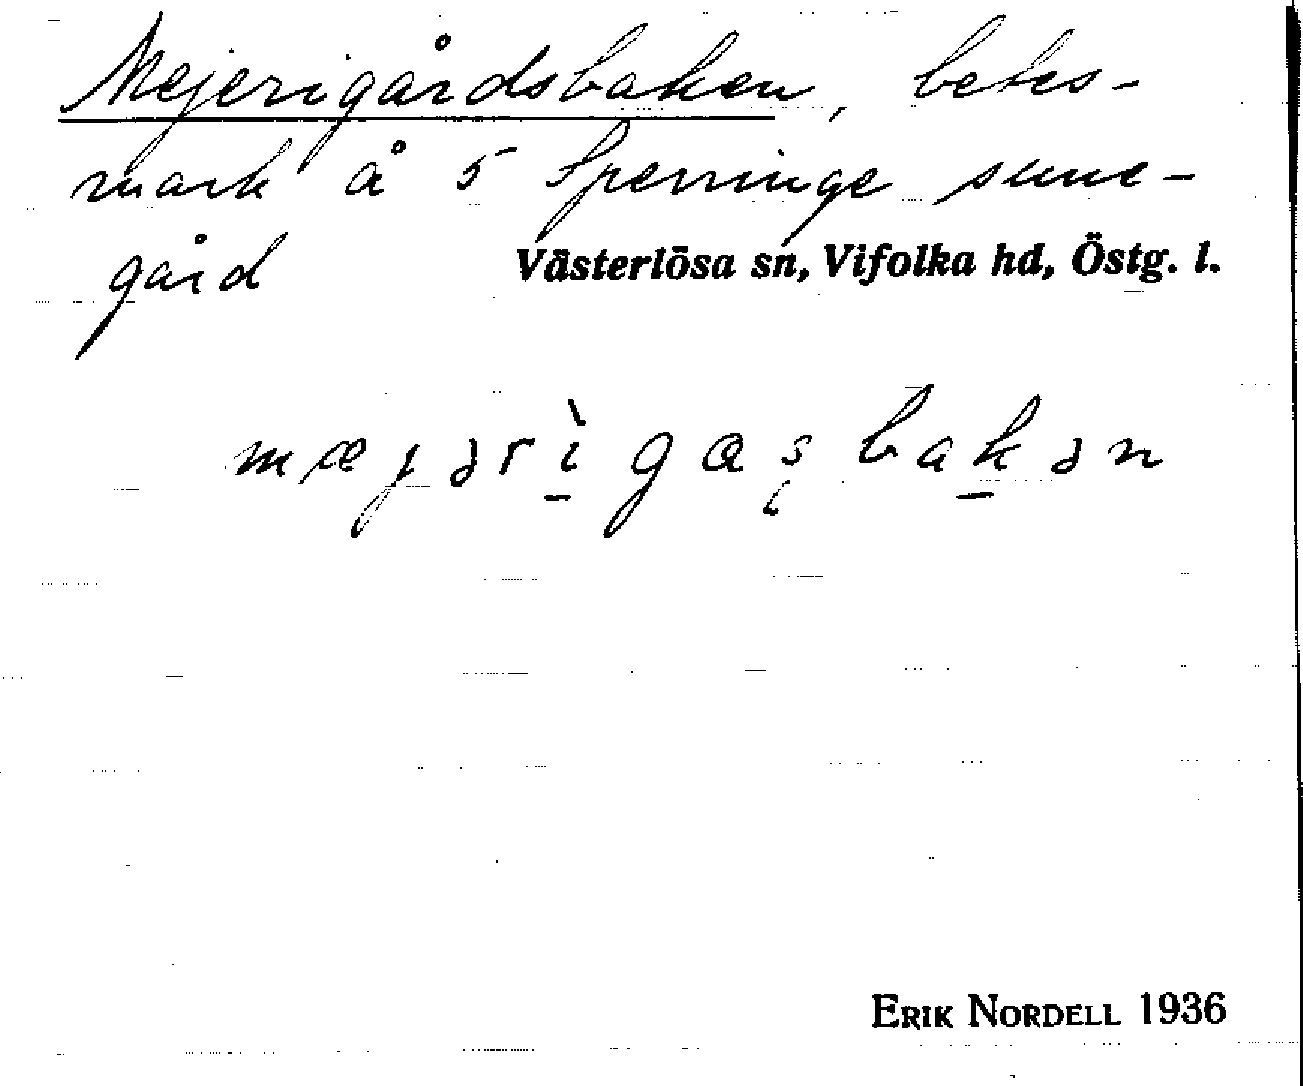 Mejerigårdsbaken, betes-
mark å 5 Sperringe sune-
gård
Västerlösa sn, Vifolka hd, Östg. l.
mæjərìgɑșbakən
ERIK NORDELL 1936